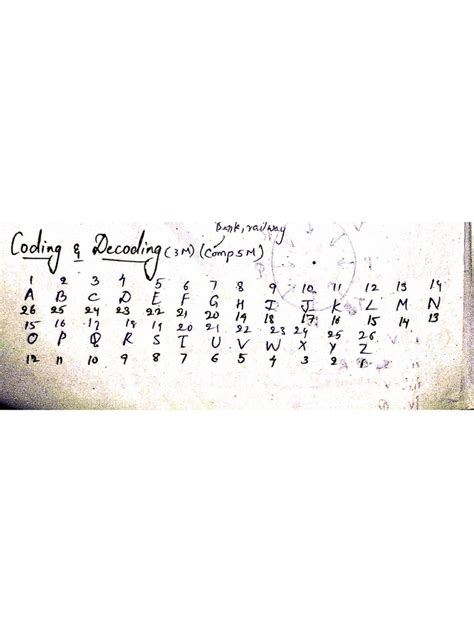 Bank, railway
Coding & Decoding (3M) (Comp 5M)
1 2 3 4 5 6 7 8 9 10 11 12 13 14
A B C D E F G H I J K L M N
26 25 24 23 22 21 20 19 18 17 16 15 14 13
15 16 17 18 19 20 21 22 23 24 25 26
O P Q R S T U V W X Y Z
12 11 10 9 8 7 6 5 4 3 2 1